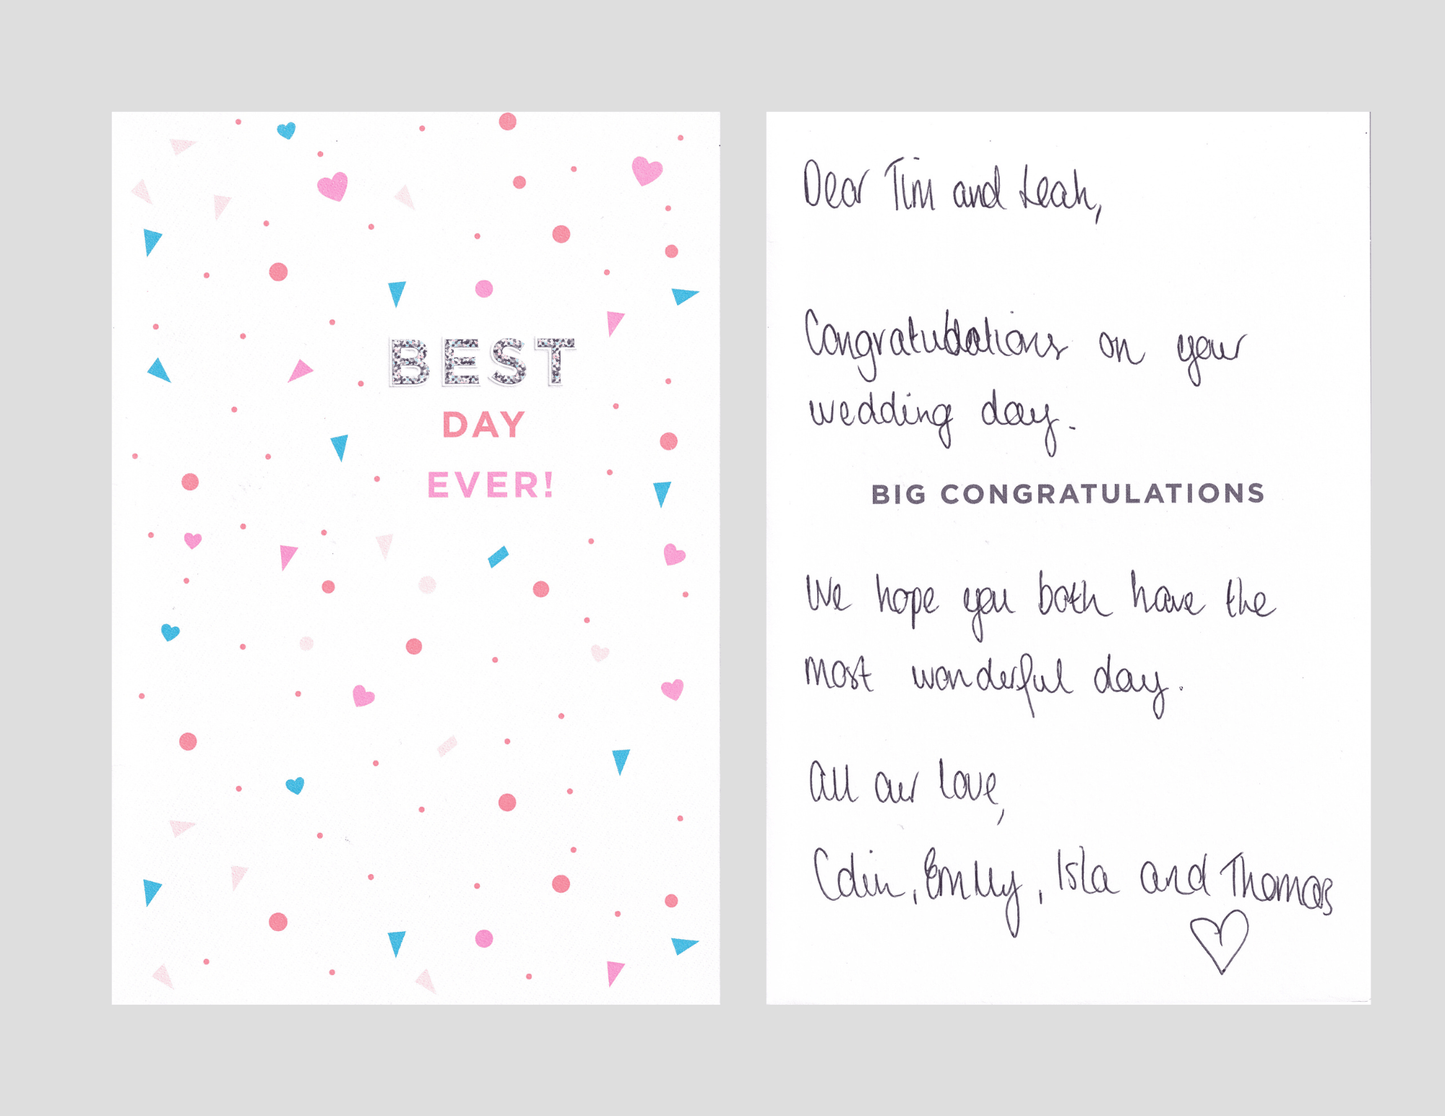 BEST
DAY
EVER!
Dear Tim and Leah,
Congratulations on your
wedding day.
BIG CONGRATULATIONS
We hope you both have the
most wonderful day.
All our love,
Colin, Emily, Isla and Thomas